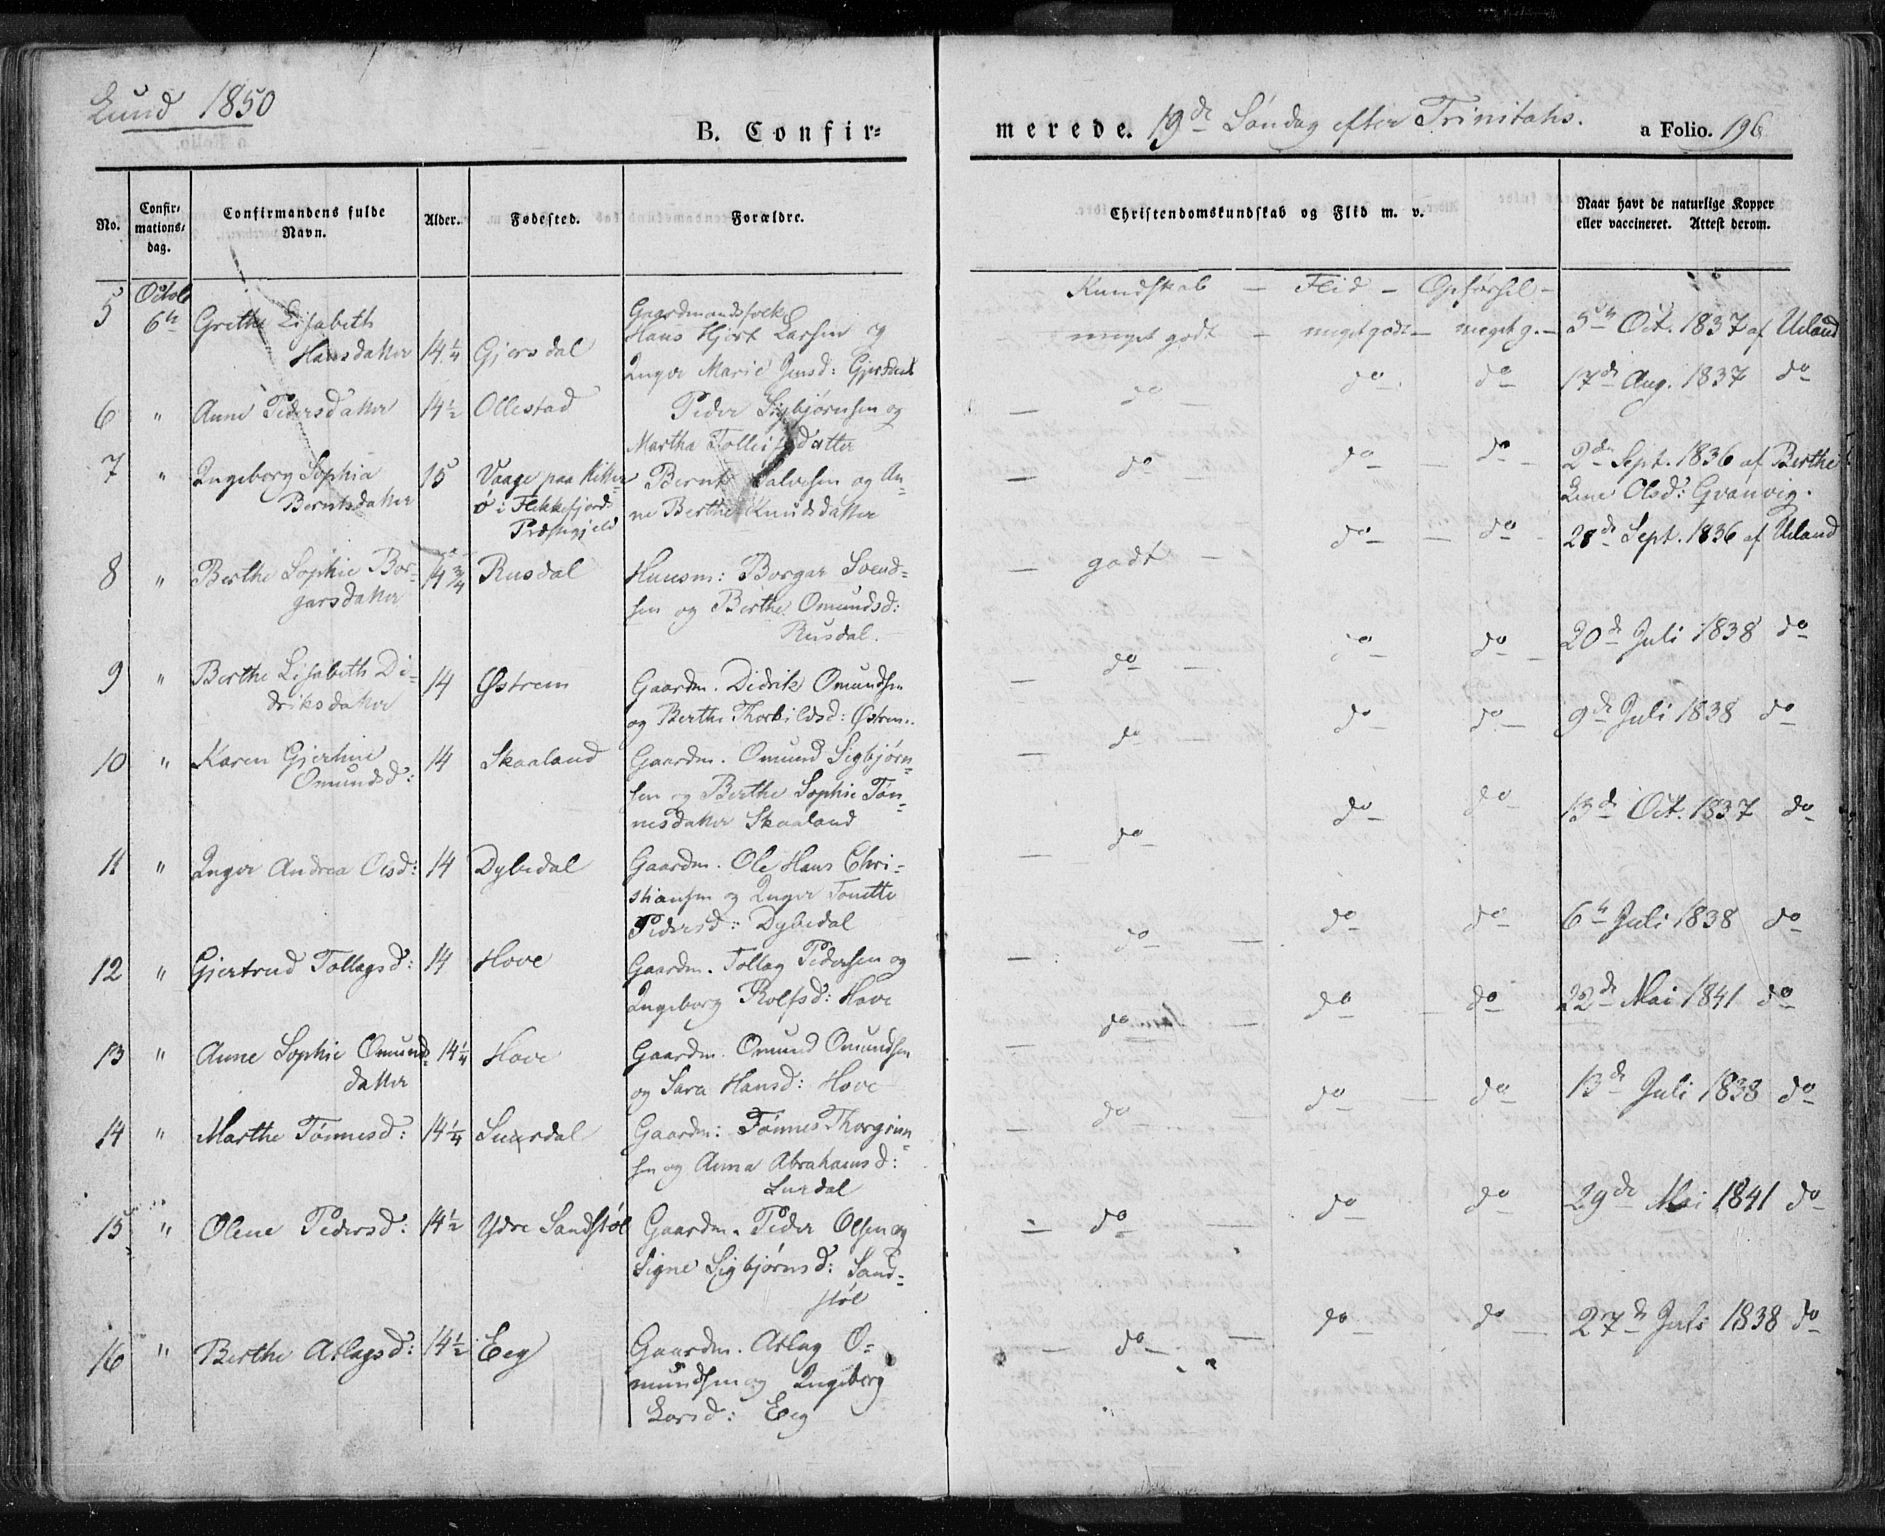 Lund 1850
B. Confir-
merede. 19de Søndag efter Trinitatis. a Folio. 196
No.
Confir-
mations-
dag.
Confirmandens fulde
Navn.
Alder.
Fødested.
Forældre.
Christendomskundskab og Flid m. v.
Naar havt de naturlige Kopper
eller vaccineret. Attest derom.
Kundskab - Flid - Opførsel -
5 Octob 6te Grethe Lisabeth
Hansdatter 14 1/4 Gjersdal
Gaardmandsfolk
Hans Hjort Larsen og
Inger Marie Jensd: Gjersdal
meget godt - meget godt - meget g. - 5te Oct. 1837 af Ueland
6 " Anne Pedersdatter 14 1/2 Ollestad
Peder Sigbjørnsen og
Martha Tollefsdatter
do do do 17de Aug. 1837 do
7 " Ingeborg Sophia
Berntsdatter 15 Vaage paa Hitter-
ø i Flekkefjords
Præstegjeld
Bernt Salvesen og An-
ne Berthe Knudsdatter
do do do 2den Sept. 1836 af Berthe
Lene Olsd: Granvig.
8 " Berthe Sophie Bor-
garsdatter 14 3/4 Rusdal
Huusm: Borgar Svend-
sen og Berthe Omundsd:
Rusdal.
godt - do - do - 28de Sept. 1836 af Ueland
9 " Berthe Lisabeth Di-
driksdatter 14 Østrem
Gaardm. Didrik Omundsen
og Berthe Thorkildsd: Østrem.
do do do 20de Juli 1838 do
10 " Karen Gjertine
Omundsd: 14 Skaaland
Gaardm. Omund Sigbjørn-
sen og Berthe Sophie Tøn-
nesdatter Skaaland
do do do 9de Juli 1838 do
11 " Inger Andrea Olsd: 14 Dybedal
Gaardm. Ole Hans Chri-
stiansen og Inger Tonette
Pedersd: Dybedal
do do do 13de Oct. 1837 do
12 " Gjertrud Tollagsd: 14 Hove
Gaardm. Tollag Pedersen og
Ingeborg Rolfsd: Hove
do do do 6te Juli 1838 do
13 " Anne Sophie Omunds-
datter 14 1/4 Hove
Gaardm. Omund Omundsen
og Sara Hansd: Hove
do do do 22de Mai 1841 do
14 " Marthe Tønnesd: 14 1/4 Surdal
Gaardm: Tønnes Thorgrim-
sen og Anna Abrahamsd:
Surdal
do do do 13de Juli 1838 do
15 " Olene Pedersd: 14 1/2 Ydre Sandstøl
Gaardm. Peder Olsen og
Signe Sigbjørnsd: Sand-
støl
- do - do do 29de Mai 1841 do
16 " Berthe Atlagsd: 14 1/2 Eeg
Gaardm. Atlag O-
mundsen og Ingeborg
Larsd: Eeg
- do - do - do - 27de Juli 1838 do